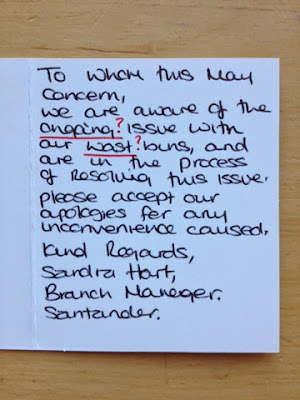 To whom this May
Concern,
we are aware of the
ongoing? issue with
our wast? bins, and
are in the process
of Resolving this issue.
please accept our
apologies for any
inconvenience caused.
Kind Regards,
Sandra Hart,
Branch Manager.
Santander.